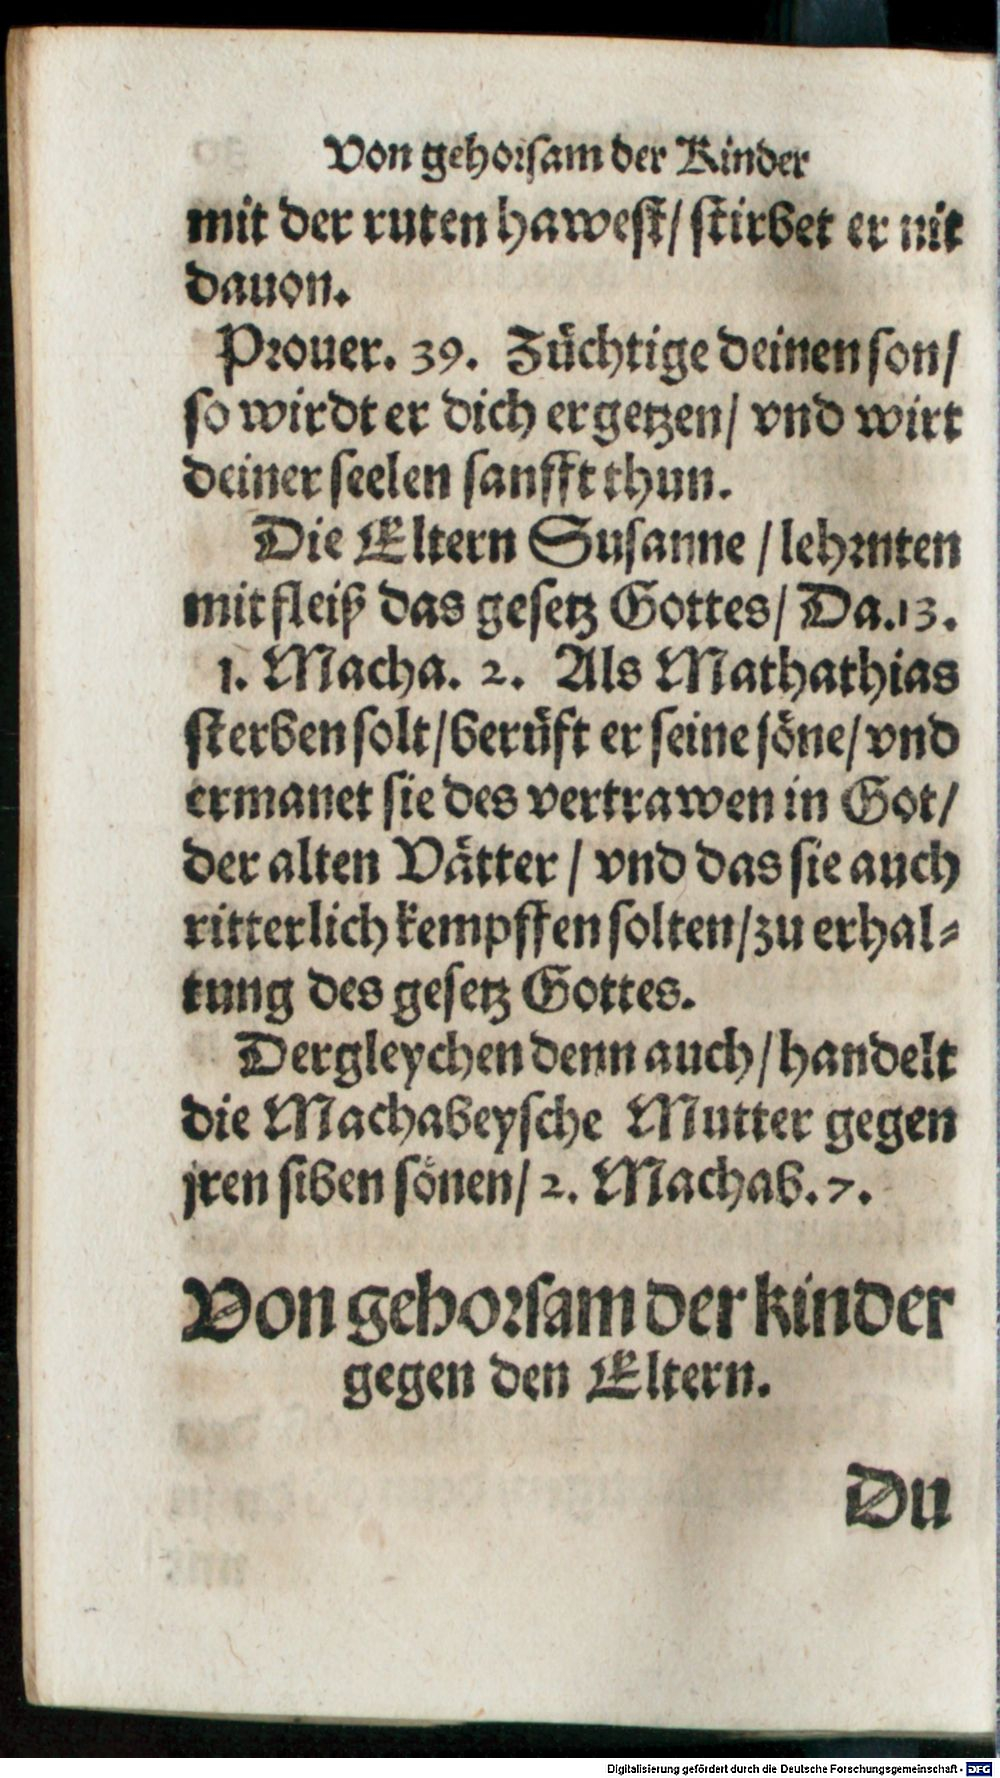 Von gehorsam der Kinder
mit der ruten hawest/ stirbet er nit
dauon.
Prouer. 39. Züchtige deinen son/
so wirdt er dich ergetzen/ vnd wirt
deiner seelen sanfft thun.
Die Eltern Susanne / lehrnten
mit fleiß das gesetz Gottes/ Da.13.
1. Macha. 2. Als Mathathias
sterben solt/ berüft er seine söne/ vnd
ermanet sie des vertrawen in Got/
der alten Vätter / vnd das sie auch
ritterlich kempffen solten/ zu erhal-
tung des gesetz Gottes.
Dergleychen denn auch/ handelt
die Machabeysche Mutter gegen
jren siben sönen/ 2. Machab. 7.
Von gehorsam der kinder
gegen den Eltern.
Du
Digitalisierung gefördert durch die Deutsche Forschungsgemeinschaft - DFG